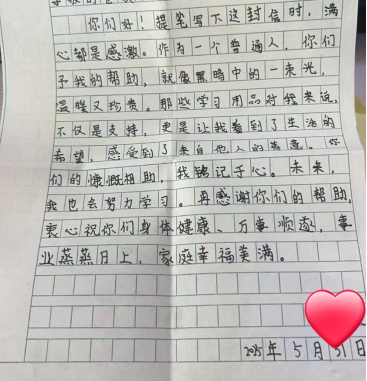 你们好！提笔写下这封信时，满
心都是感激。作为一个普通人，你们
予我的帮助，就像黑暗中的一束光，
温暖又珍贵。那些学习用品对我来说，
不仅是支持，更是让我看到了生活的
希望，感受到了来自他人的善意。你
们的慷慨相助，我铭记于心。未来，
我也会努力学习。再感谢你们的帮助，
衷心祝你们身体健康、万事顺遂，事
业蒸蒸日上，家庭幸福美满。
2025年5月31日